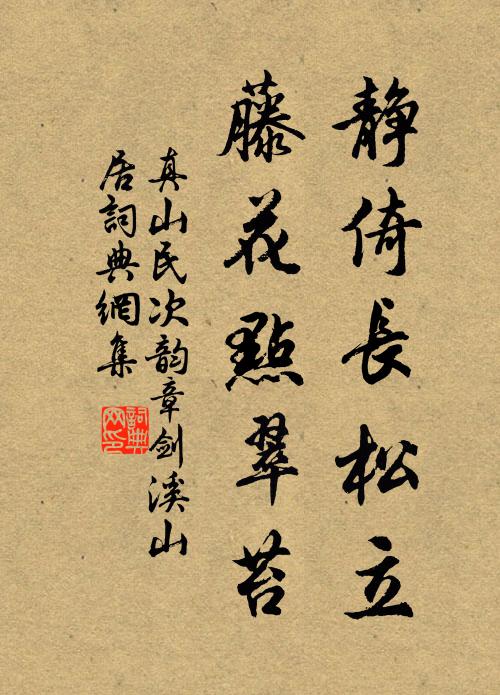 靜倚長松立
藤花點翠苔
真山民次韵章剑溪山
居詞典網集
詞典网印